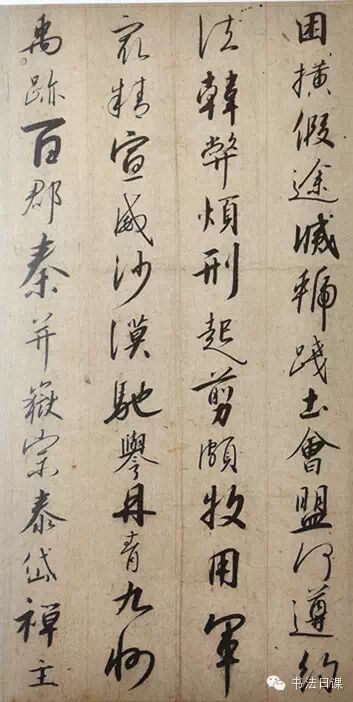 困横假途滅虢踐土會盟何遵約
法韓弊煩刑起翦頗牧用軍
最精宣威沙漠馳譽丹青九州
禹跡百郡秦并嶽宗泰岱禪主
书法日课